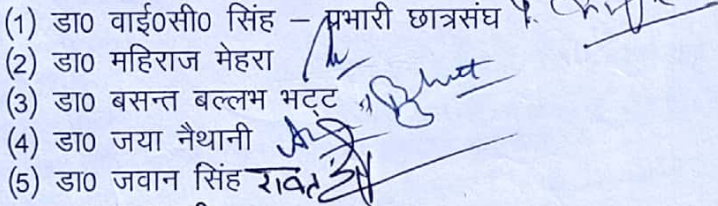 (1) डा0 वाई0सी0 सिंह – प्रभारी छात्रसंघ
(2) डा0 महिराज मेहरा
(3) डा0 बसन्त बल्लभ भट्ट Bhatt
(4) डा0 जया नैथानी
(5) डा0 जवान सिंह रावत